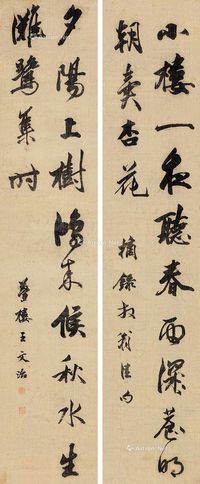 小樓一夜聽春雨深巷明
朝賣杏花
摘錄放翁佳句
夕陽上樹來候秋水生
灘鷺集時
夢樓王文治